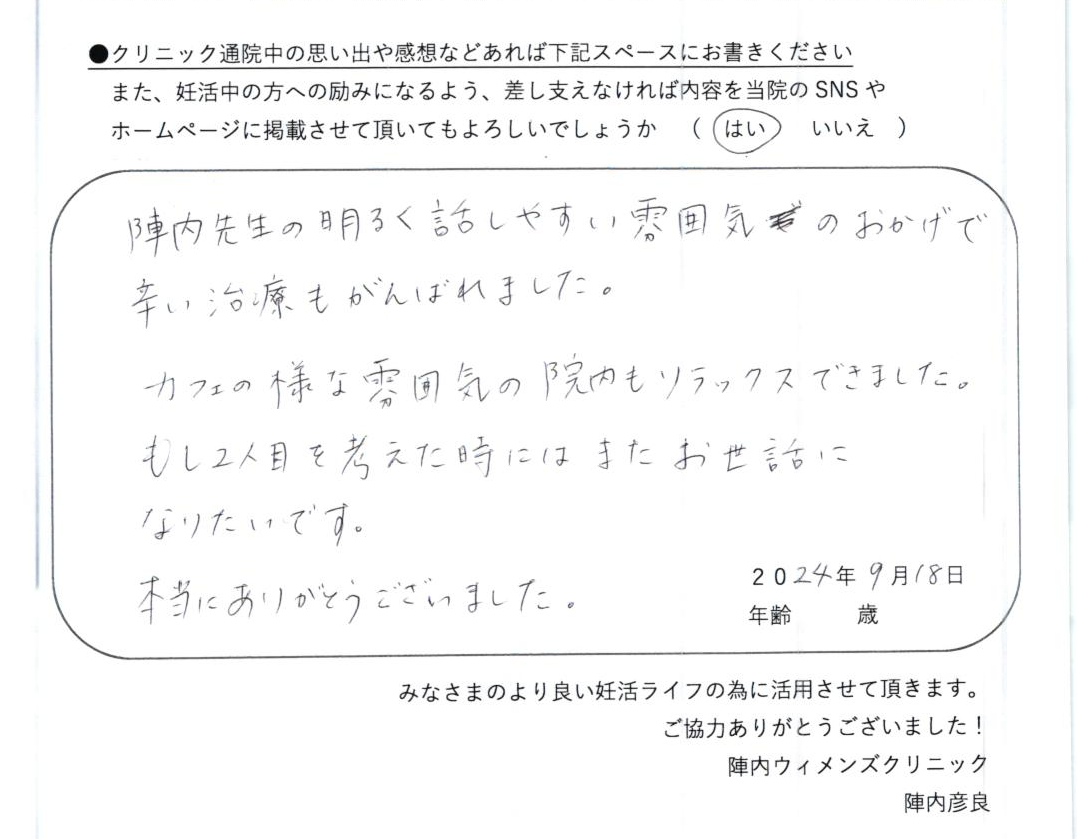 ●クリニック通院中の思い出や感想などあれば下記スペースにお書きください
また、妊活中の方への励みになるよう、差し支えなければ内容を当院のSNSや
ホームページに掲載させて頂いてもよろしいでしょうか （ はい いいえ ）
陣内先生の明るく話しやすい雰囲気のおかげで
辛い治療もがんばれました。
カフェの様な雰囲気の院内もリラックスできました。
もし2人目を考えた時にはまたお世話に
なりたいです。
本当にありがとうございました。
2024年9月18日
年齢 歳
みなさまのより良い妊活ライフの為に活用させて頂きます。
ご協力ありがとうございました！
陣内ウィメンズクリニック
陣内彦良